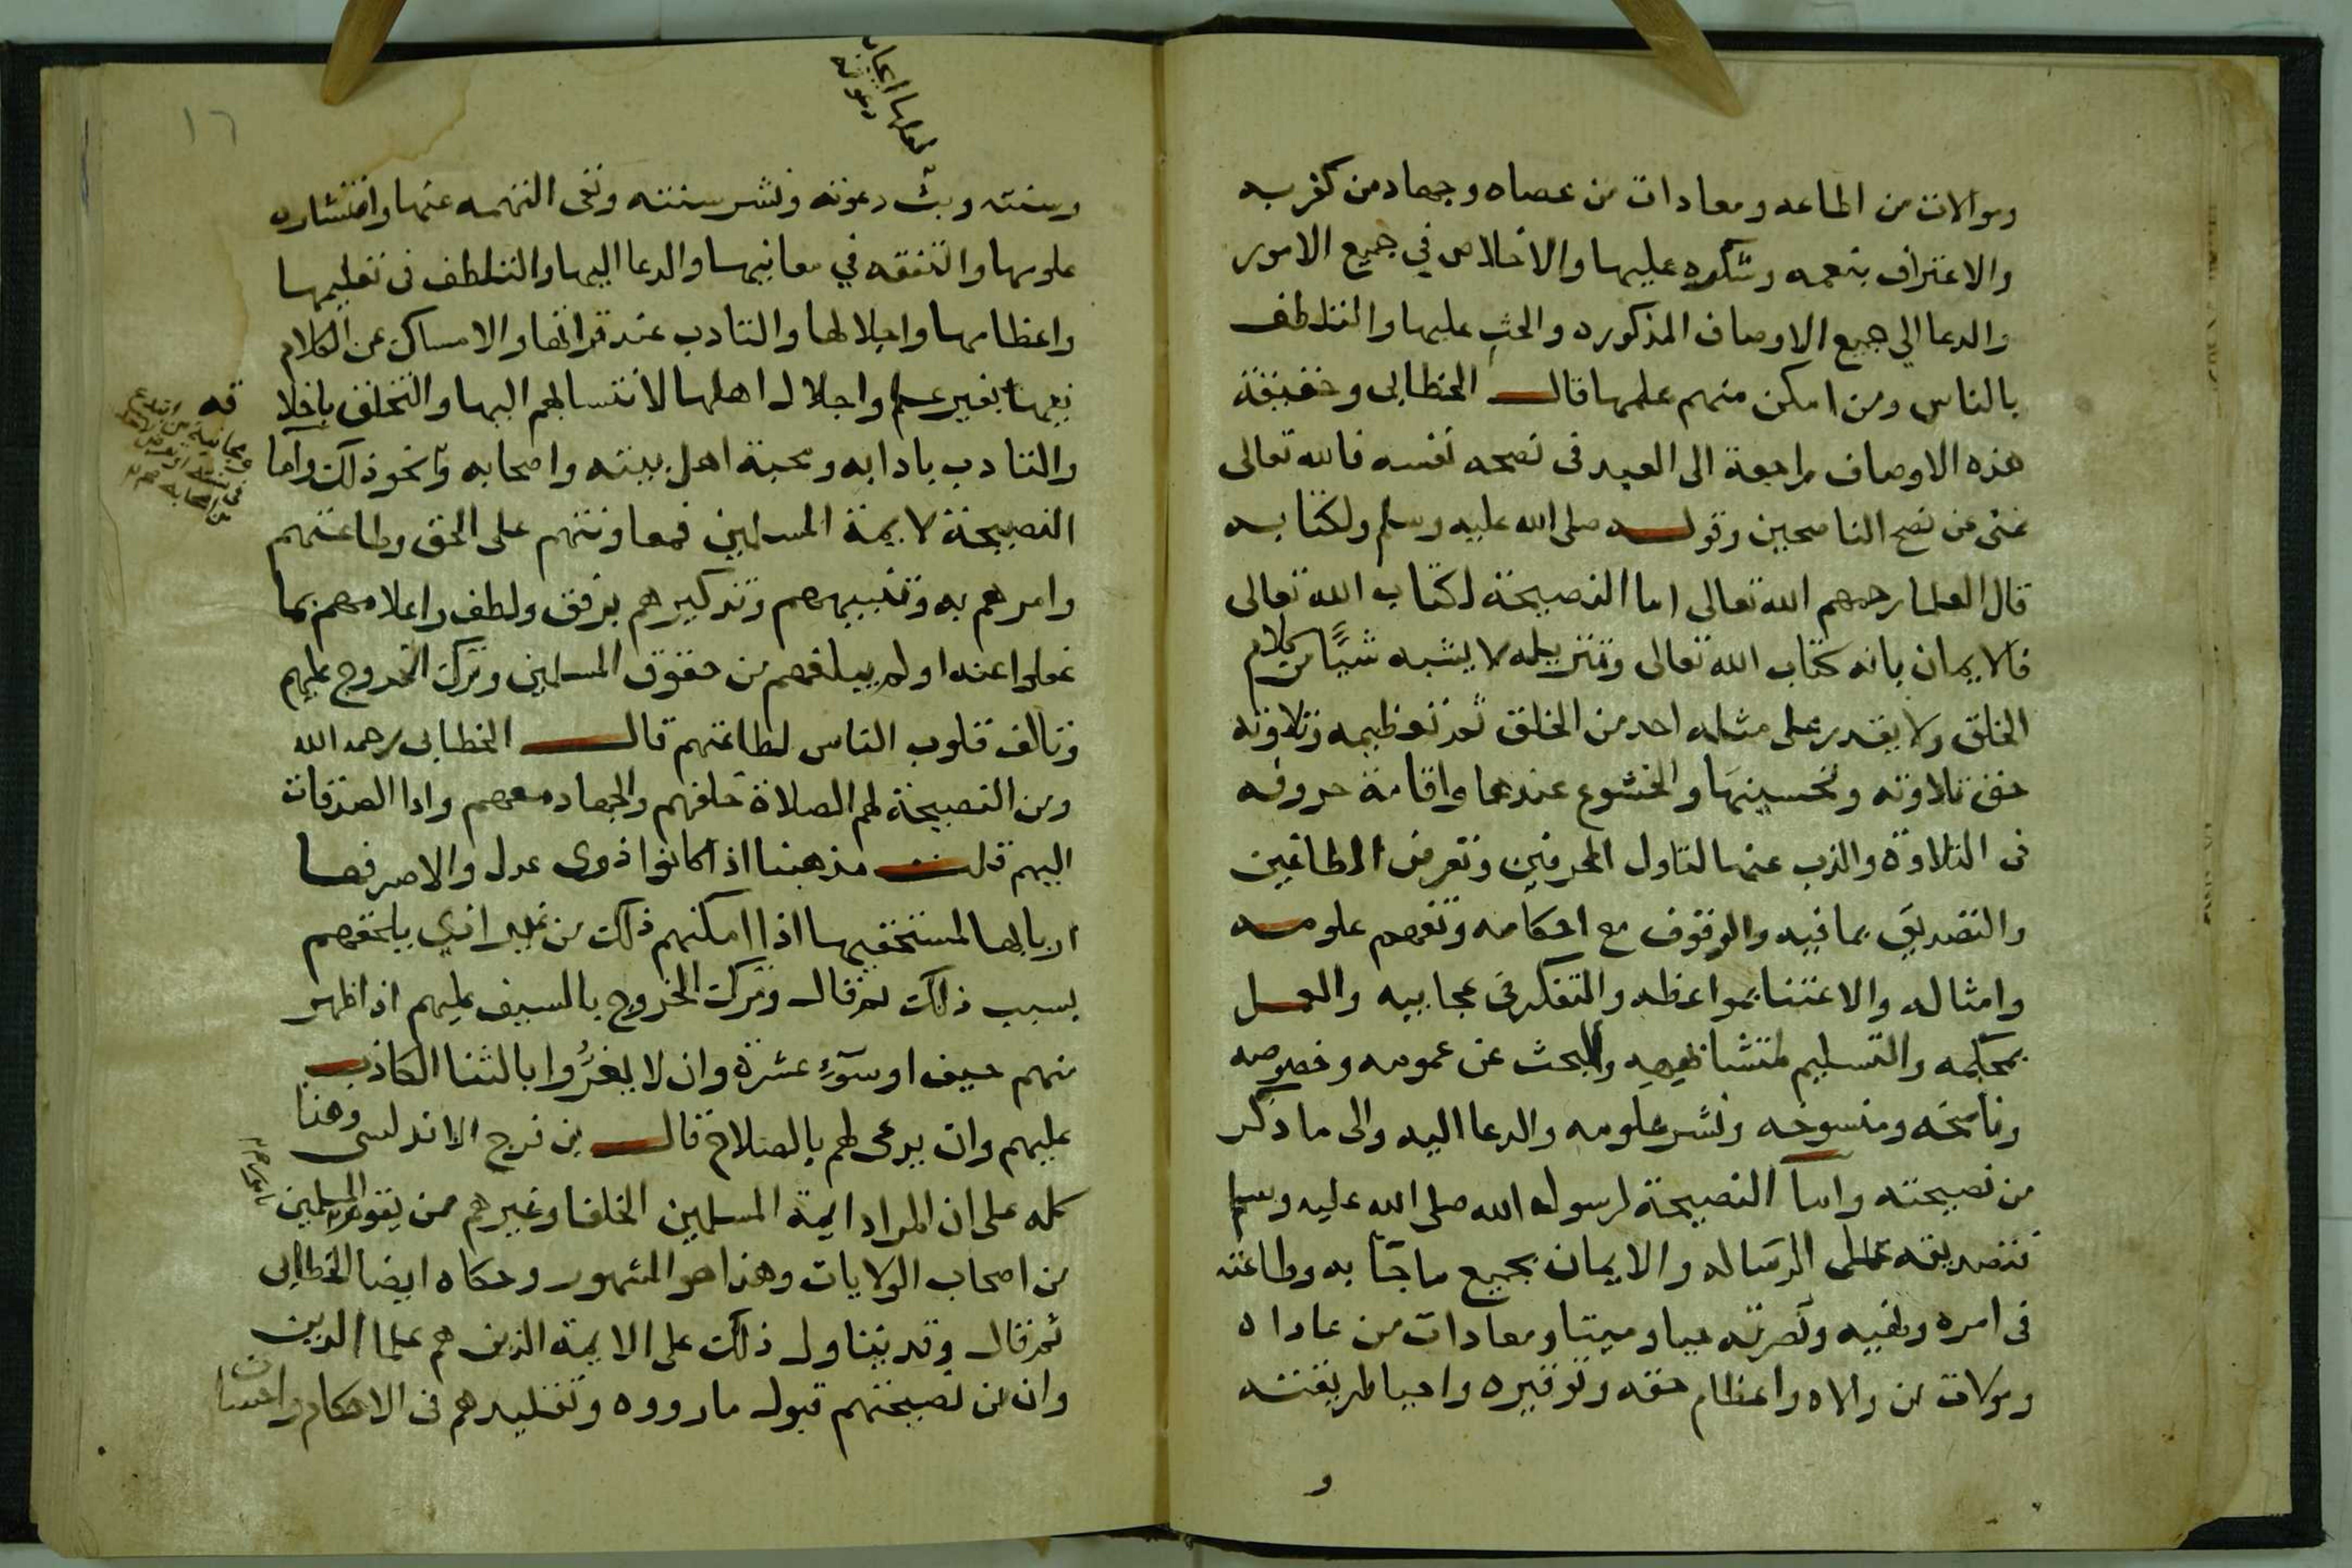 وموالات من اطاعه ومعادات من عصاه وجهاد من كفر به
والاعتراف بنعمه وشكره عليها والاخلاص في جميع الامور
والدعا الي جميع الاوصاف المذكوره والحث عليها والتلطف
بالناس ومن امكن منهم علمها قال الخطابى وحقيقة
هذه الاوصاف راجعة الى العبد فى نصحه نفسه فالله تعالى
غنى عن نصح الناصحين وقوله صلى الله عليه وسلم ولكتابه
قال العلما رحمهم الله تعالى اما النصيحة لكتاب الله تعالى
فالايمان بانه كتاب الله تعالى وتنزيله لا يشبه شيًا من كلام
الخلق ولا يقدر على مثله احد من الخلق ثم تعظيمه وتلاوته
حق تلاوته وتحسينها والخشوع عندها واقامة حروفه
فى التلاوة والذب عنها لتاول المحرفين وتعرض الطاغين
والتصديق بما فيه والوقوف مع احكامه وتفهم علومه
وامثاله والاعتنا بمواعظه والتفكر فى عجايبه والعمل
بمحكمه والتسليم لمتشابهه والبحث عن عمومه وخصوصه
وناسخه ومنسوخه ونشر علومه والدعا اليه والى ما ذكر
من نصيحته واما النصيحة لرسول الله صلى الله عليه وسلم
فتصديقه على الرساله والايمان بجميع ما جآ به وطاعته
فى امره ونهيه ونصرته حيا وميتا ومعادات من عاداه
وموالات من والاه واعظام حقه وتوقيره واحيا طريقته
و
١٦
لعلها
دعوته
وسنته وبثّ دعوته ونشر سنته ونفى التهمه عنها وانتشاره
علومها والتفقه في معانيها والدعا اليها والتلطف فى تعليمها
واعظامها واجلالها والتادب عند قراتها والامساك عن الكلام
فيها بغير علم واجلال اهلها لانتسابهم اليها والتخلق باخلا
قه
والتادب بادابه ومحبة اهل بيته واصحابه ونحو ذلك واما
النصيحة لايمة المسلمين فمعاونتهم على الحق وطاعتهم
وامرهم به وتنبيههم وتذكيرهم برفق ولطف واعلامهم بما
غفلوا عنه او لم يبلغهم من حقوق المسلمين وترك الخروج عليهم
وتالف قلوب الناس لطاعتهم قال الخطابى رحمه الله
ومن النصيحة لهم الصلاة خلفهم والجهاد معهم وادا الصدقات
اليهم قلت مذهبنا اذا كانوا ذوى عدل والا صرفها
اربابها لمستحقيها اذا امكنهم ذلك من غير اذي يلحقهم
بسبب ذلك ثم قال وترك الخروج بالسيف عليهم اذا ظهر
منهم حيف او سوٓء عشرة وان لا يغرُّوا بالثنا الكاذب
عليهم وان يدعى لهم بالصلاح قال بن فرج الاندلسى وهذا
كله على ان المراد ايمة المسلمين الخلفا وغيرهم ممن يقوم المسلمين
من اصحاب الولايات وهذا هو المشهور وحكاه ايضا الخطابى
ثم قال وقد يتناول ذلك على الايمة الذين هم علما الدين
وان من نصيحتهم قبول ما رووه وتقليدهم فى الاحكام واحسان